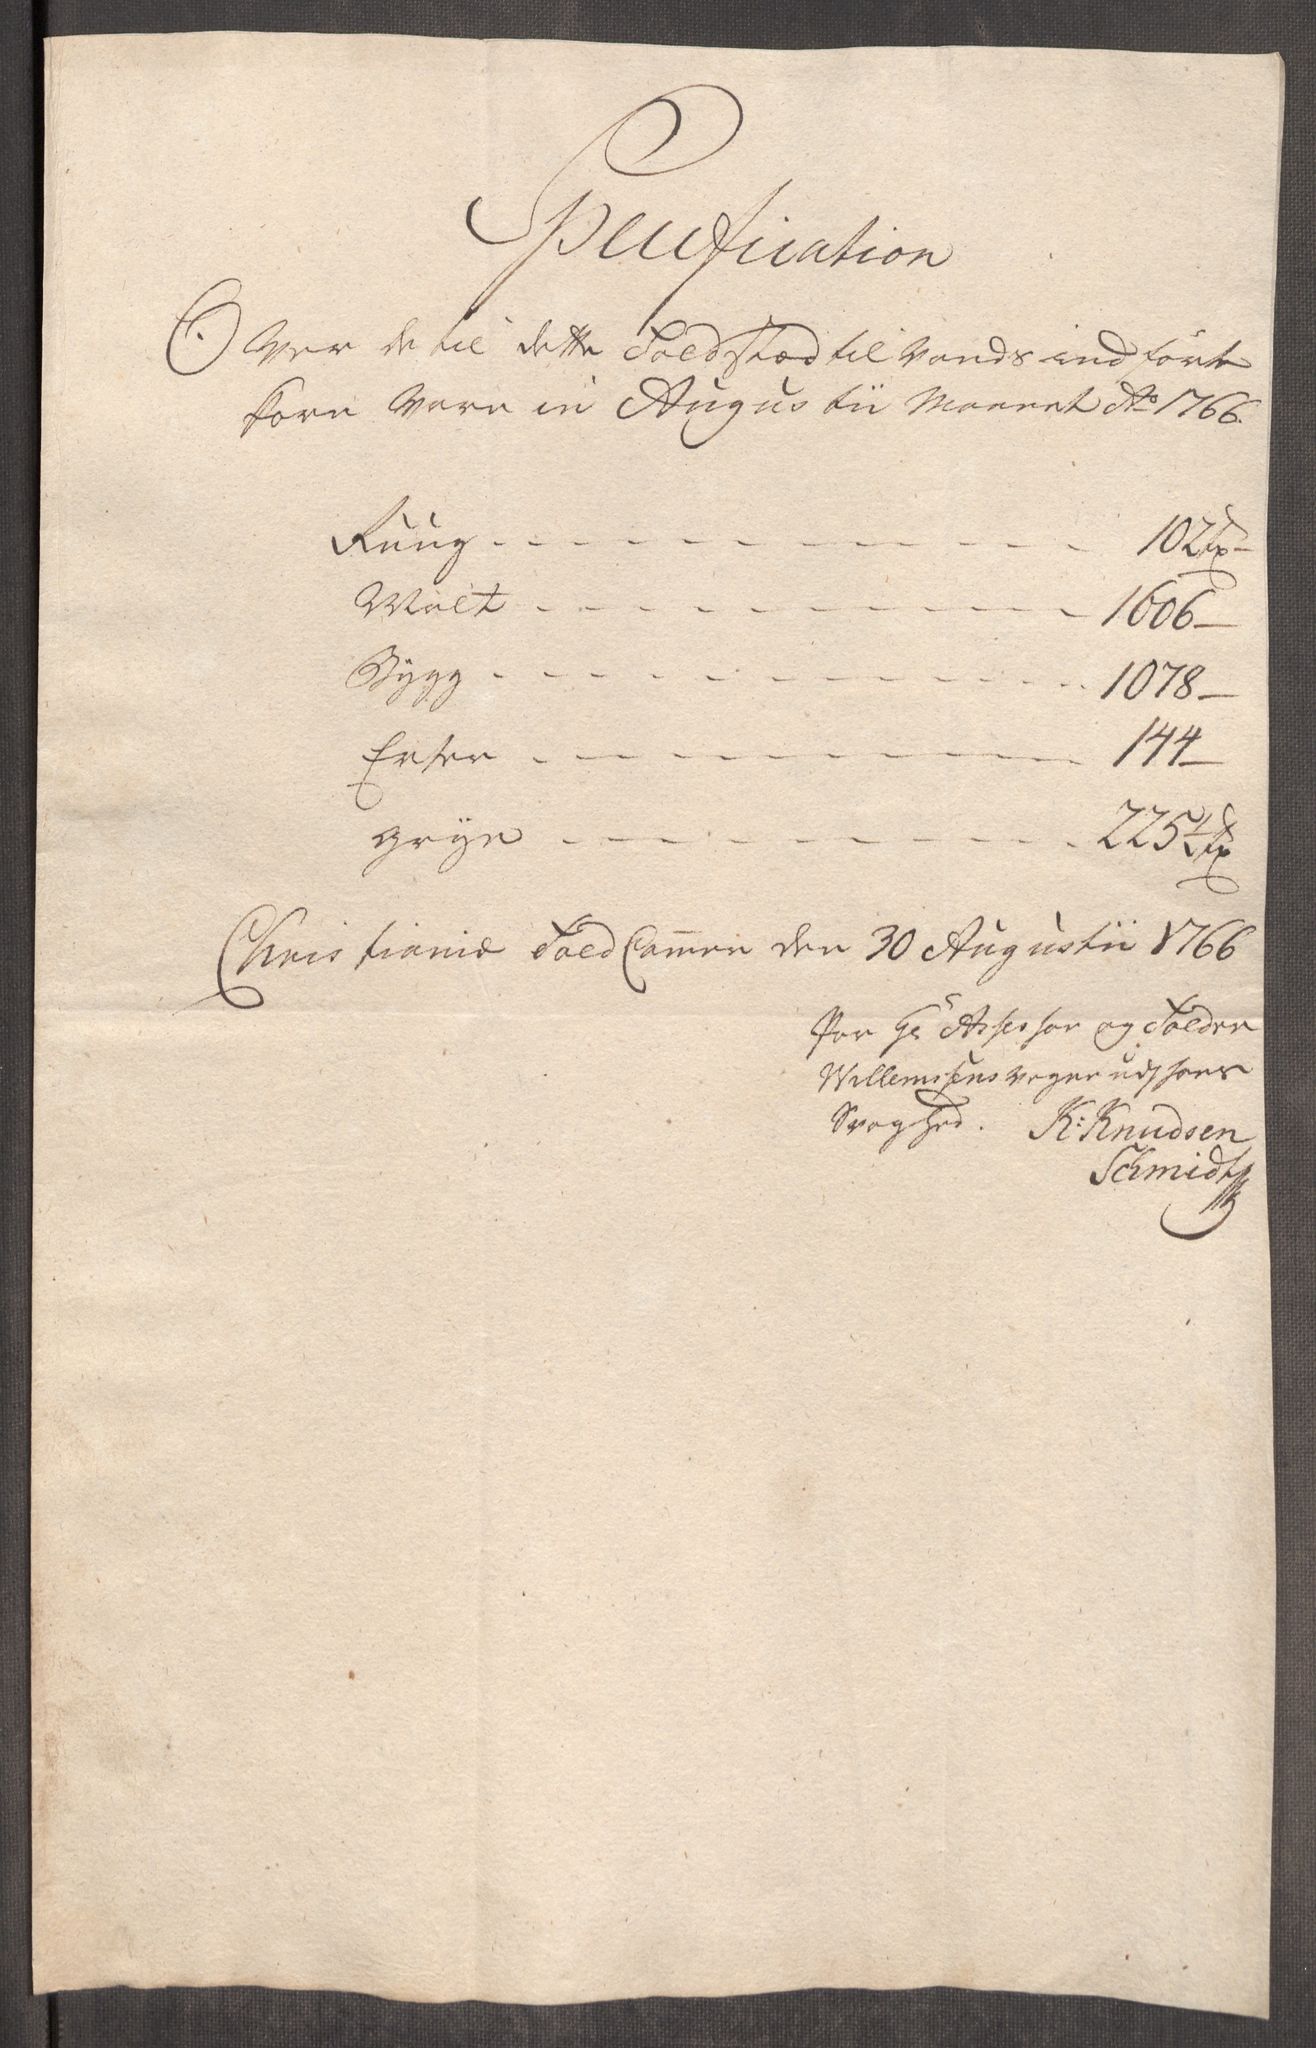 Specification
Over de til dette Toldstæd til Vands indførte
Korn Vare in Augustii Maanet Ao 1766.
Ruug - - - - - - - - - 102 Tr –
Malt - - - - - - - - - 1606 –
Bygg - - - - - - - - - 1078 –
Erter - - - - - - - - - 144 –
gryn - - - - - - - - - 225½ Tr
Christiania Told Cam̅er den 30 Augustii 1766
For Hr Assessor og Tolder
Willemsens Vegne udj hans
Svaghed. K: Knudsen
Schmidt